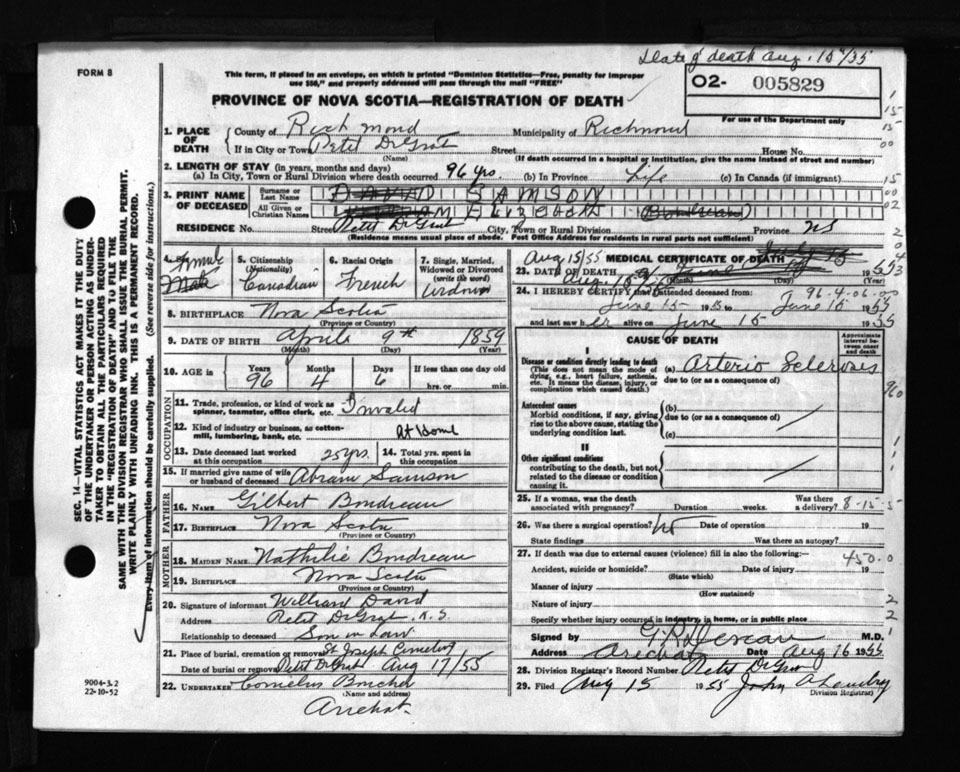 Date of death Aug. 15th/55
FORM 8
This form, if placed in an envelope, on which is printed "Dominion Statistics—Free, penalty for improper
use $50," and properly addressed will pass through the mail "FREE"
O2- 005829
For use of the Department only
PROVINCE OF NOVA SCOTIA—REGISTRATION OF DEATH
1. PLACE OF DEATH
County of Richmond Municipality of Richmond
If in City or Town Petit DeGrat Street House No.
(Name) (If death occurred in a hospital or institution, give the name instead of street and number)
2. LENGTH OF STAY (in years, months and days)
(a) In City, Town or Rural Division where death occurred 96 yrs. (b) In Province Life (c) In Canada (if immigrant)
3. PRINT NAME OF DECEASED
Surname or Last Name SAMSON
All Given or Christian Names Elizabeth (Boudreau)
RESIDENCE No. Street Petit DeGrat City, Town or Rural Division Province NS
(Residence means usual place of abode. Post Office Address for residents in rural parts not sufficient)
4. Female Male
5. Citizenship (Nationality) Canadian
6. Racial Origin French
7. Single, Married, Widowed or Divorced (write the word) Widow
8. BIRTHPLACE Nova Scotia
(Province or Country)
9. DATE OF BIRTH April 9th 1859
(Month) (Day) (Year)
10. AGE in Years 96 Months 4 Days 6 If less than one day old
hrs. or min.
OCCUPATION
11. Trade, profession or kind of work as spinner, teamster, office clerk, etc. Invalid
12. Kind of industry or business, as cotton-mill, lumbering, bank, etc. At Home
13. Date deceased last worked at this occupation 25 yrs. 14. Total yrs. spent in this occupation
15. If married give name of wife or husband of deceased Abram Samson
FATHER
16. NAME Gilbert Boudreau
17. BIRTHPLACE Nova Scotia
(Province or Country)
MOTHER
18. MAIDEN NAME Nathalie Boudreau
19. BIRTHPLACE Nova Scotia
(Province or Country)
20. Signature of informant Williard David
Address Petit DeGrat, N.S.
Relationship to deceased Son in Law
21. Place of burial, cremation or removal St Joseph Cemetery
Date of burial or removal Petit DeGrat Aug 17/55
22. UNDERTAKER Cornelius Boucher
(Name and address)
Arichat
Aug 15/55 MEDICAL CERTIFICATE OF DEATH
23. DATE OF DEATH 1955
(Month) (Day)
96-4-06-00
24. I HEREBY CERTIFY that I attended deceased from:
June 15 1955 to June 15 1955
and last saw her alive on June 15 1955
CAUSE OF DEATH
Approximate interval between onset and death
I
Disease or condition directly leading to death
(This does not mean the mode of dying, e.g., heart failure, asthenia, etc. It means the disease, injury, or complication which caused death.)
(a) Arterio Sclerosis
due to (or as a consequence of)
Antecedent causes
Morbid conditions, if any, giving rise to the above cause, stating the underlying condition last.
(b)
due to (or as a consequence of)
(c)
II
Other significant conditions
contributing to the death, but not related to the disease or condition causing it.
25. If a woman, was the death associated with pregnancy? Duration weeks. Was there a delivery? 8-15-5
26. Was there a surgical operation? No Date of operation 19
State findings Was there an autopsy?
27. If death was due to external causes (violence) fill in also the following:—
450.0
Accident, suicide or homicide? Date of injury 19
(State which)
Manner of injury
(How sustained)
Nature of injury
Specify whether injury occurred in industry, in home, or in public place
Signed by M.D.
Address Arichat Date Aug 16 1955
28. Division Registrar's Record Number Petit DeGrat
29. Filed Aug 15 1955 John A Landry
Division Registrar)
SEC. 14—VITAL STATISTICS ACT MAKES IT THE DUTY
OF THE UNDERTAKER OR PERSON ACTING AS UNDER-
TAKER TO OBTAIN ALL THE PARTICULARS REQUIRED
IN THE "REGISTRATION OF DEATH" AND TO FILE THE
SAME WITH THE DIVISION REGISTRAR WHO SHALL ISSUE THE BURIAL PERMIT.
WRITE PLAINLY WITH UNFADING INK. THIS IS A PERMANENT RECORD.
Every item of information should be carefully supplied. (See reverse side for instructions.)
9004-3.2
22-10-52